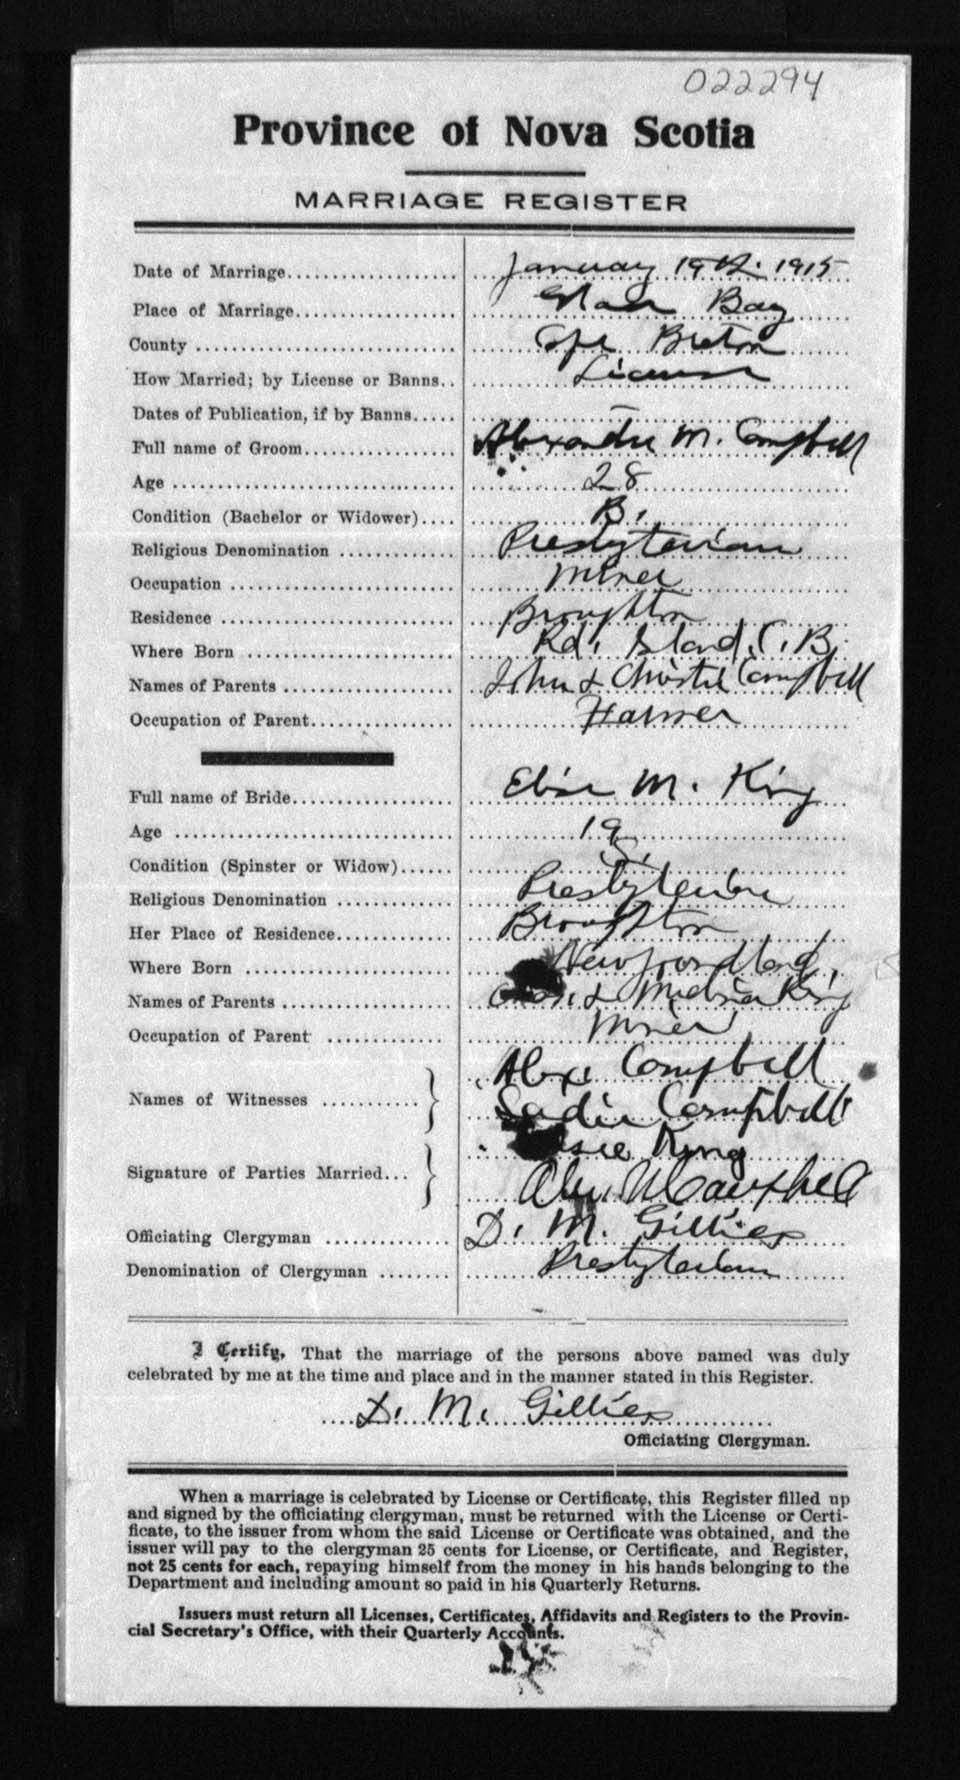 022294
Province of Nova Scotia
MARRIAGE REGISTER
Date of Marriage................... January 19th 1915
Place of Marriage.................. Bay
County ............................. Cape Breton
How Married; by License or Banns.. License
Dates of Publication, if by Banns..... —
Full name of Groom................ Alexander M. Campbell
Age ................................ 28
Condition (Bachelor or Widower).... B.
Religious Denomination ............. Presbyterian
Occupation ......................... Miner
Residence .......................... Broughton
Where Born ....................... Rd. Island, C. B.
Names of Parents ................... John & Christie Campbell
Occupation of Parent................ Farmer
Full name of Bride.................. M. King
Age ................................ 19
Condition (Spinster or Widow)...... S.
Religious Denomination ............. Presbyterian
Her Place of Residence............. Broughton
Where Born ........................ Newfoundland,
Names of Parents ................... & King
Occupation of Parent .............. Miner
Names of Witnesses ........... Alex. Campbell
Sadie Campbell
Signature of Parties Married... King
Alex. M Campbell
Officiating Clergyman .............. D. M. Gillies
Denomination of Clergyman ........ Presbyterian
I Certify, That the marriage of the persons above named was duly
celebrated by me at the time and place and in the manner stated in this Register.
D. M. Gillies
Officiating Clergyman.
When a marriage is celebrated by License or Certificate, this Register filled up
and signed by the officiating clergyman, must be returned with the License or Certi-
ficate, to the issuer from whom the said License or Certificate was obtained, and the
issuer will pay to the clergyman 25 cents for License, or Certificate, and Register,
not 25 cents for each, repaying himself from the money in his hands belonging to the
Department and including amount so paid in his Quarterly Returns.
Issuers must return all Licenses, Certificates, Affidavits and Registers to the Provin-
cial Secretary's Office, with their Quarterly Accounts.